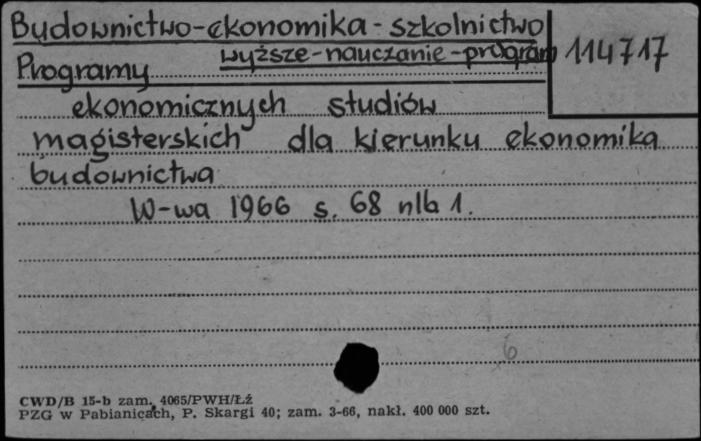 Budownictwo-ekonomika-szkolnictwo
wyższe-nauczanie-program
114717
Programy
ekonomicznych studiów
magisterskich dla kierunku ekonomika
budownictwa
W-wa 1966 s. 68 nlb 1.
6
CWD/B 15-b zam. 4065/PWH/Łź
PZG w Pabianicach, P. Skargi 40; zam. 3-66, nakł. 400 000 szt.